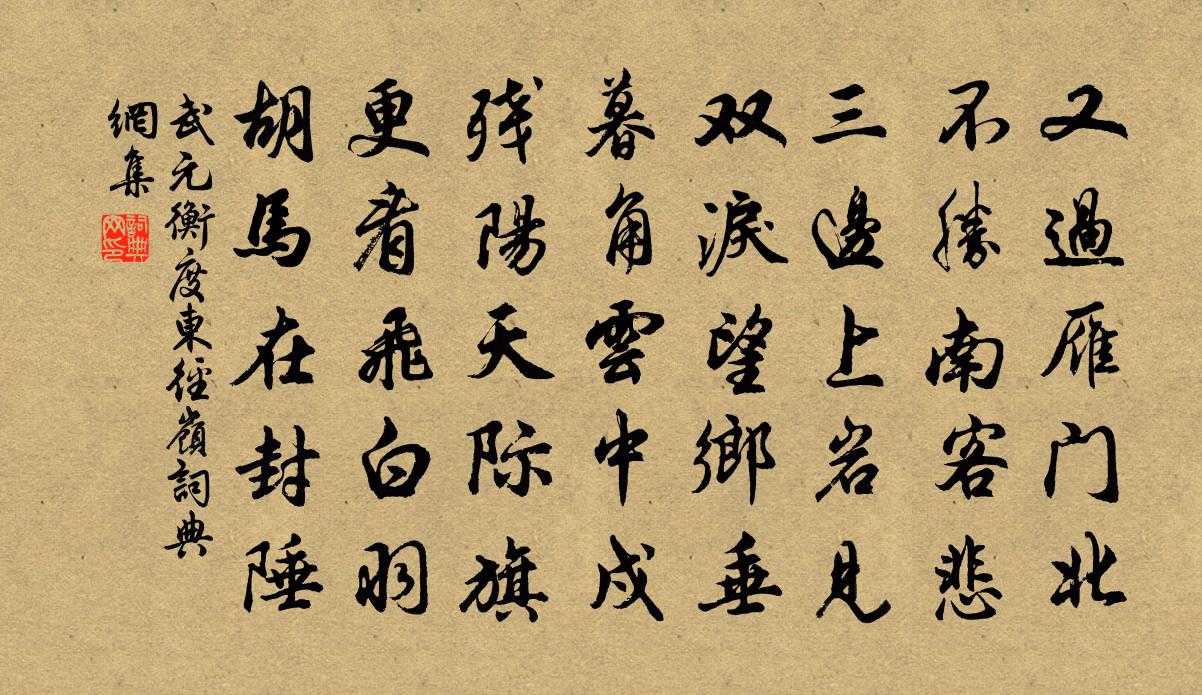 又過雁门北
不勝南客悲
三邊上岩見
双淚望鄉垂
暮角雲中戍
残陽天际旗
更看飛白羽
胡馬在封陲
武元衡度東徑嶺詞典
網集
詞典
网印